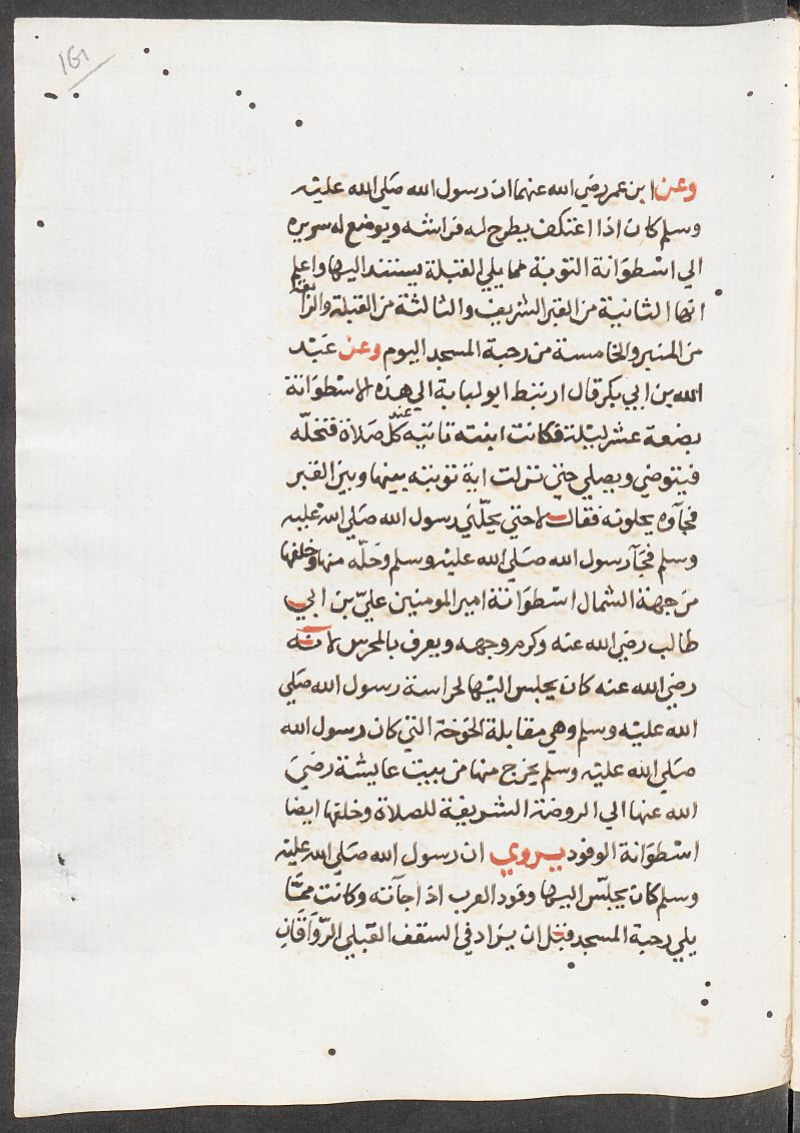 161
وعن ابن عمر رضي الله عنهما ان رسول الله صَلي الله عليه
وسلم كان اذا اعتكف يطرح له فراشه ويوضع له سريره
الي اسْطوَانة التوبة مما يلي القبلة يستند اليها واعلم
انها الثانية من القبر الشريف والثالثة من القبلة والرابعة
من المنبر والخامسة من رحبة المسجد اليوم وعن عَبْد
الله بن ابي بكر قال ارتبط ابو لبابة الي هذه الاسْطوَانة
بضعة عشر ليْلة فكانت ابنته تاتيه عند كلّ صَلاة فتحلّه
فيتوضي ويصلي حتي نزلت اية توبته بينها وبين القبر
فجآوه يحلونه فقال لا حتي يحلّني رسول الله صَلي الله عليه
وسلم فجَآ رسول الله صَلي الله عليه وسلم وحَلّه منها وخلفها
من جهة الشمال اسْطوَانة امير المومنين عليّ بن ابي
طالب رضي الله عنه وكرم وجهه ويعرف بالمحرس لانّه
رضي الله عنه كان يجلس اليْها لحراسة رسول الله صَلي
الله عليْه وسلم وهي مقابلة الخوخة التي كان رسول الله
صَلي الله عليْه وسلم يخرج منها من بيت عايشة رضيَ
الله عنها الي الروضة الشريفة للصلاة وخلفها ايضا
اسْطوَانة الوفود يروي ان رسول الله صَلي الله عليْه
وسلم كان يجلسْ اليها وفود العرب اذا جآتته وكانت ممَّا
يلي رحبة المسجد قبل ان يزاد في السقف القبلي الرّوَاقَانِ